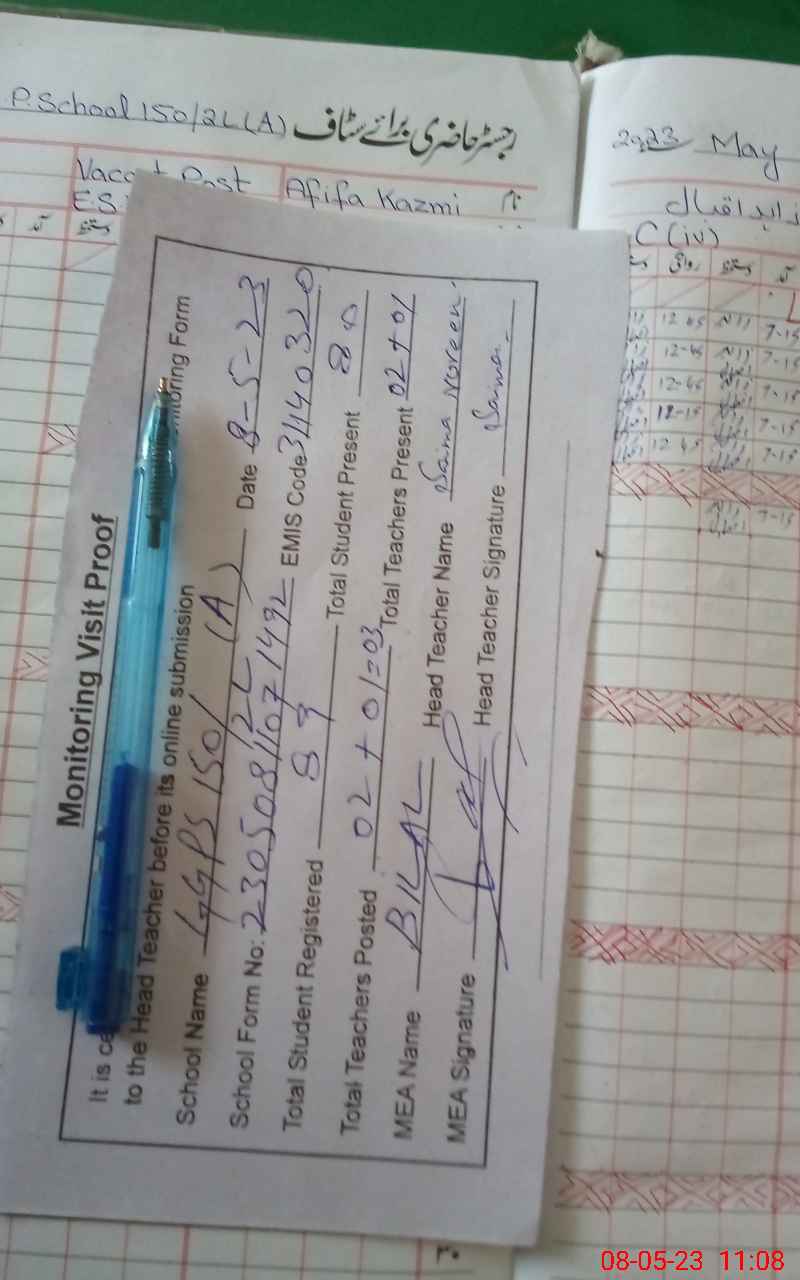 P. School 150/2L (A) رجسٹر حاضری برائے سٹاف
Afifa Kazmi نام
2023 May
زاہد اقبال
C (iv)
12-45 7-15
12-45 7-15
12-45 7-15
12-15 7-15
12-45 7-15
7-15
Monitoring Visit Proof
It is ce nitoring Form
to the Head Teacher before its online submission
School Name GGPS 150/2L (A) Date 8-5-23
School Form No: 23050811071492 EMIS Code 31140320
Total Student Registered 89 Total Student Present 80
Total Teachers Posted 02 + 01=03 Total Teachers Present 02 + 01
MEA Name BILAL Head Teacher Name Naima Noreen
MEA Signature Head Teacher Signature Naima
08-05-23 11:08